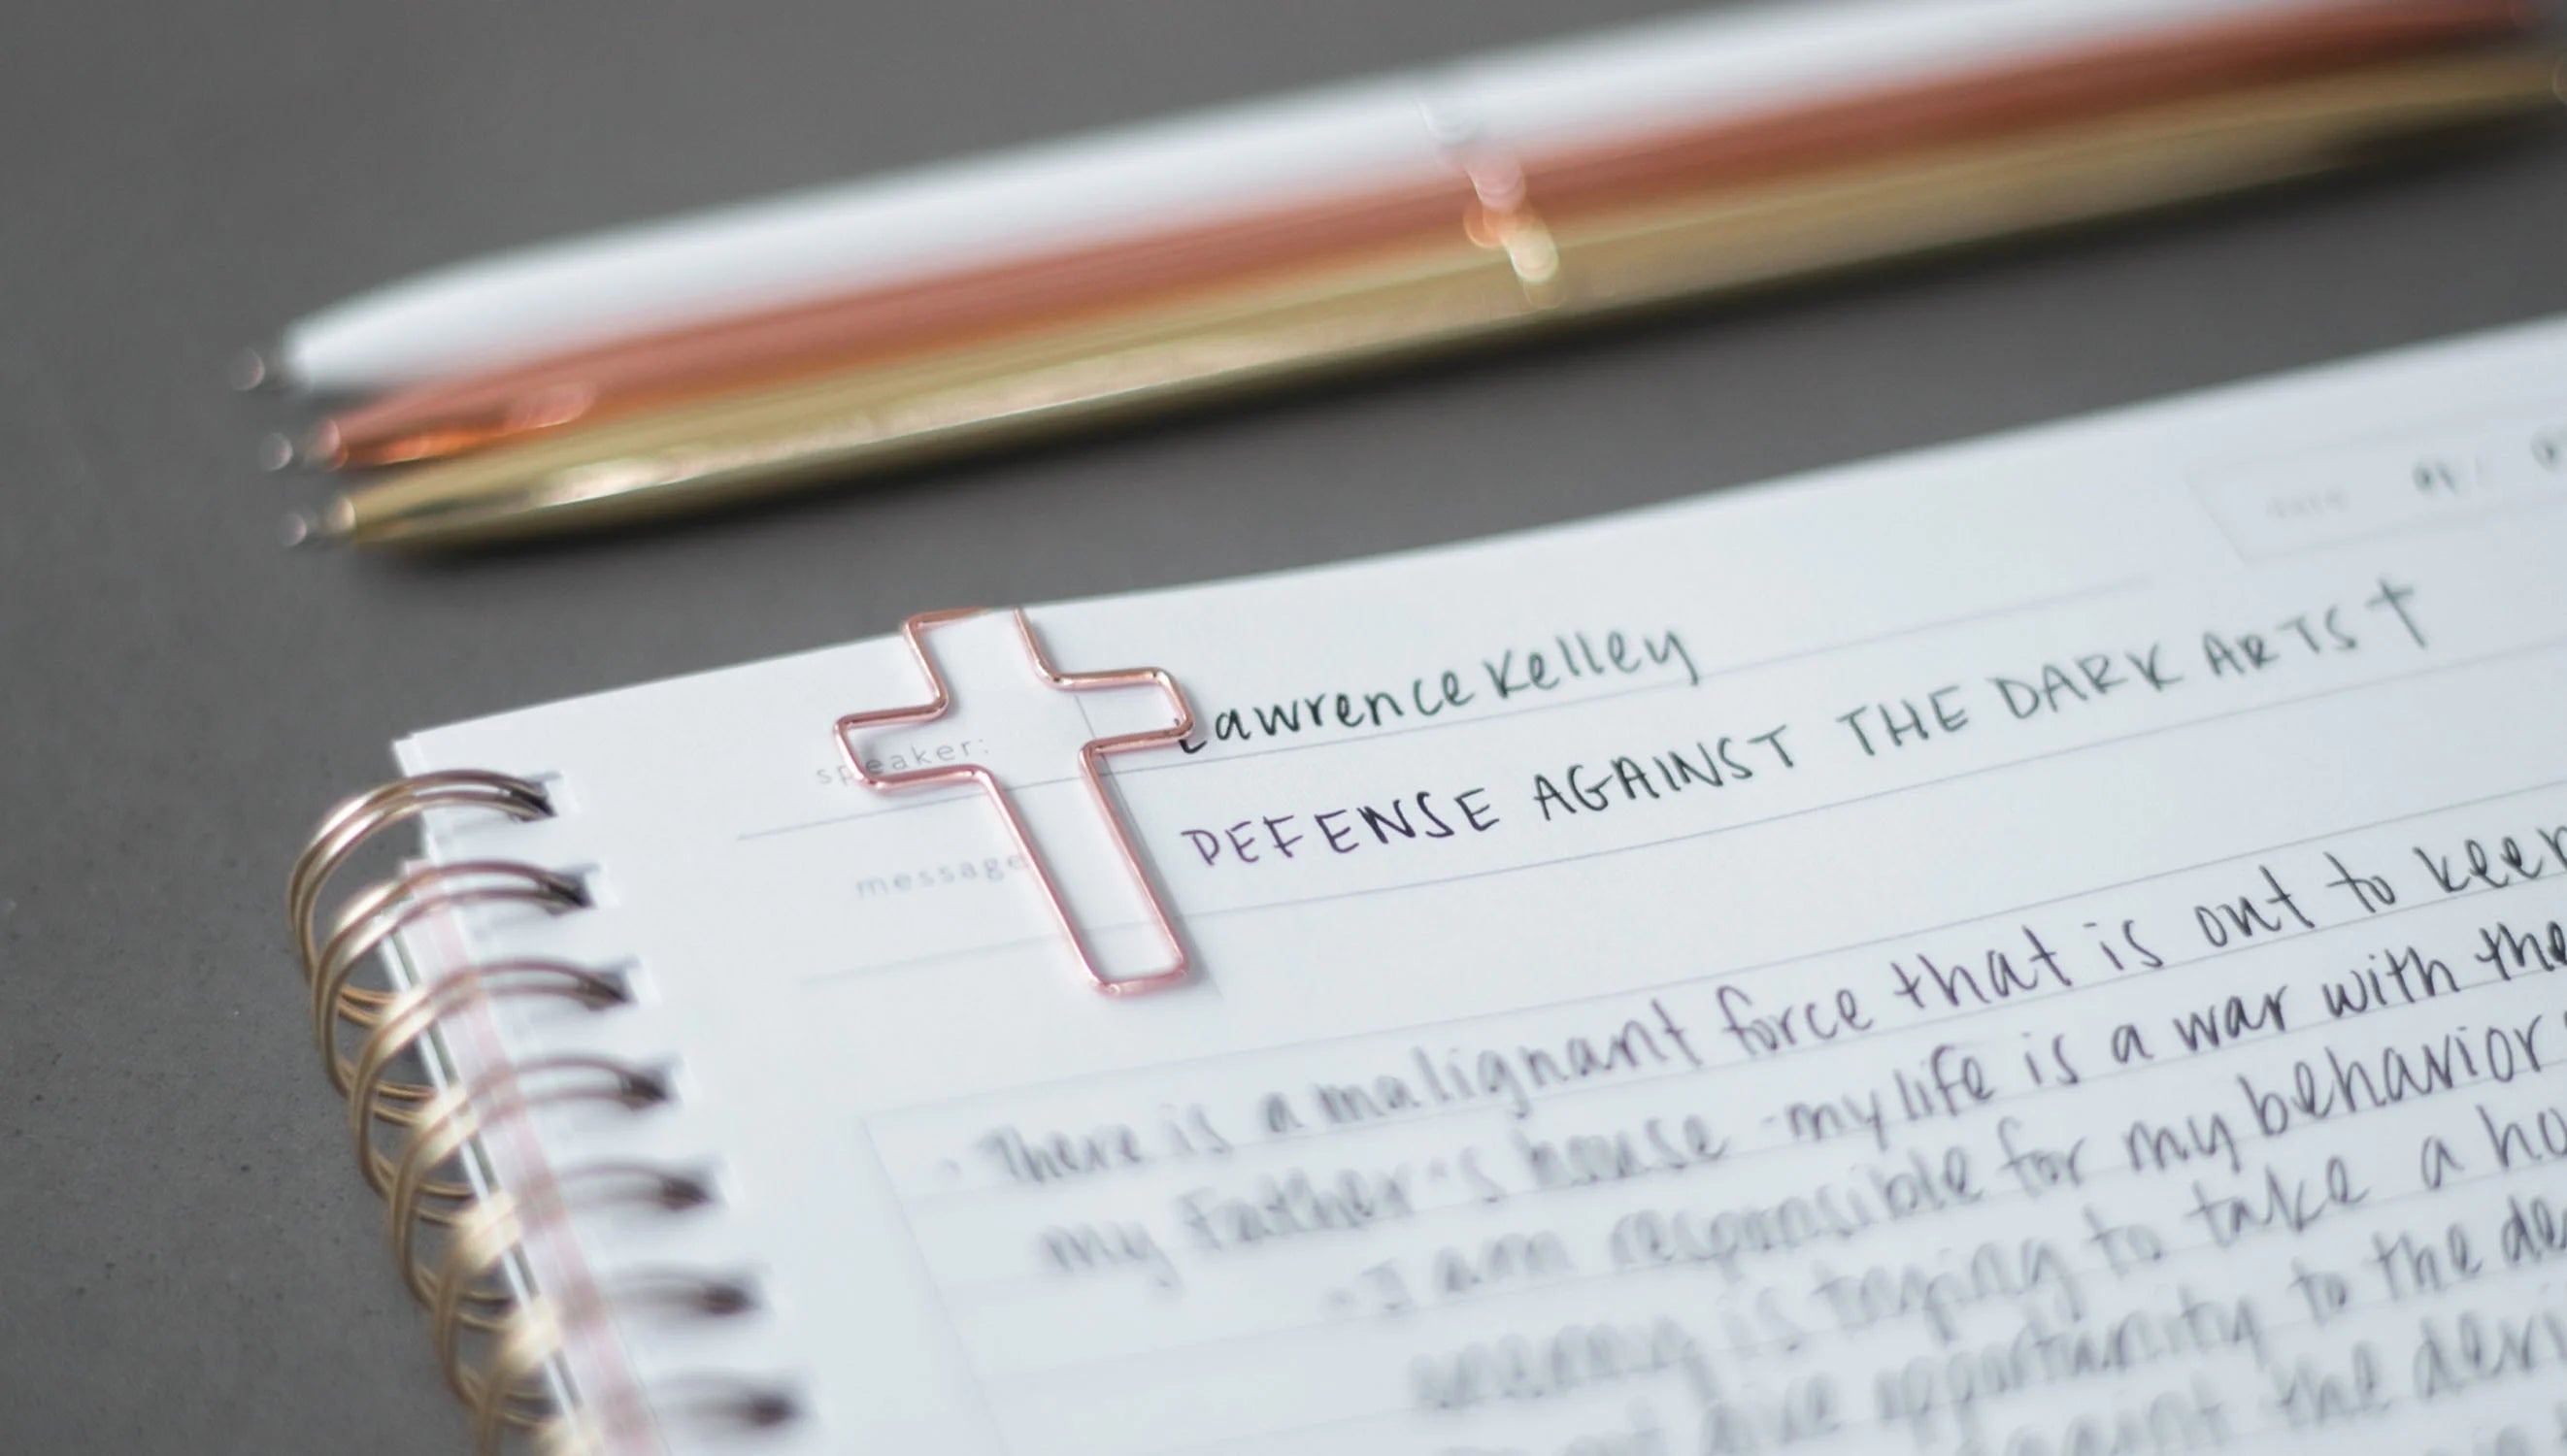 date
speaker: Lawrence Kelley
message DEFENSE AGAINST THE DARK ARTS †
• There is a malignant force that is out to keep
my Father's house - my life is a war with the
- I am responsible for my behavior
enemy is trying to take a
not give opportunity to the
against the